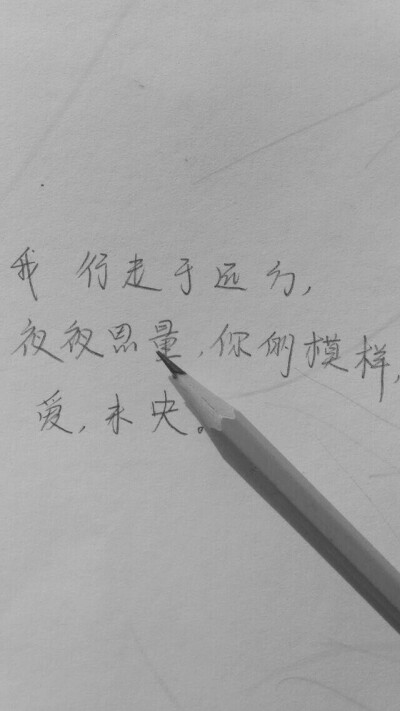 我 行走于远方，
夜夜思量，你的模样，
爱，未央。